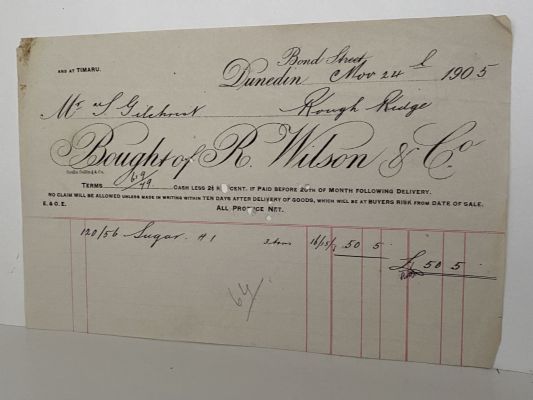 AND AT TIMARU.
Bond Street,
Dunedin Nov 24 1905
Mr S Gilchrist Rough Ridge
Bought of R. Wilson & Co
TERMS CASH LESS 2½ PER CENT. IF PAID BEFORE 20TH OF MONTH FOLLOWING DELIVERY.
NO CLAIM WILL BE ALLOWED UNLESS MADE IN WRITING WITHIN TEN DAYS AFTER DELIVERY OF GOODS, WHICH WILL BE AT BUYERS RISK FROM DATE OF SALE.
E. & O. E. ALL PRODUCE NET.
120/56 Sugar #1 3 tons 50 5
£ 50 5
64/